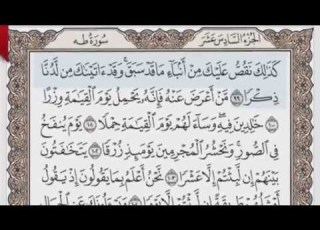 الجزء السادس عشر
سورة طه
كَذَٰلِكَ نَقُصُّ عَلَيْكَ مِنْ أَنۢبَآءِ مَا قَدْ سَبَقَ ۚ وَقَدْ ءَاتَيْنَٰكَ مِن لَّدُنَّا
ذِكْرًا ٩٩ مَّنْ أَعْرَضَ عَنْهُ فَإِنَّهُۥ يَحْمِلُ يَوْمَ ٱلْقِيَٰمَةِ وِزْرًا
١٠٠ خَٰلِدِينَ فِيهِ ۖ وَسَآءَ لَهُمْ يَوْمَ ٱلْقِيَٰمَةِ حِمْلًا ١٠١ يَوْمَ يُنفَخُ
فِى ٱلصُّورِ ۚ وَنَحْشُرُ ٱلْمُجْرِمِينَ يَوْمَئِذٍ زُرْقًا ١٠٢ يَتَخَٰفَتُونَ
بَيْنَهُمْ إِن لَّبِثْتُمْ إِلَّا عَشْرًا ١٠٣ نَّحْنُ أَعْلَمُ بِمَا يَقُولُونَ إِذْ يَقُولُ